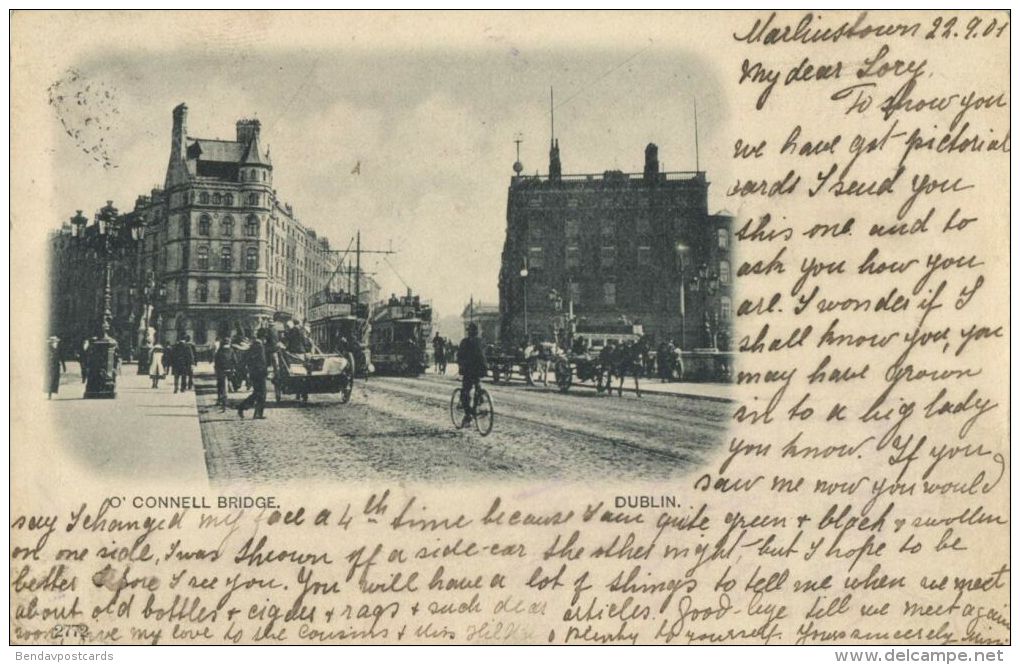 Marlinstown 22.9.01
My dear Lory,
To show you
we have got pictorial
cards I send you
this one and to
ask you how you
are. I wonder if I
shall know you, you
may have grown
in to a big lady
you know. If you
saw me now you would
O' CONNELL BRIDGE.
DUBLIN.
say I changed my face a 4th time because I am quite green + black + swollen
on one side, I was thrown off a side-car the other night, but I hope to be
better before I see you. You will have a lot of things to tell me when we meet
about old bottles + cigars + rags + such dear articles. Good-bye till we meet again
soon give my love to the cousins + Miss plenty to yourself. Yours sincerely
2772
Bendavpostcards
www.delcampe.net